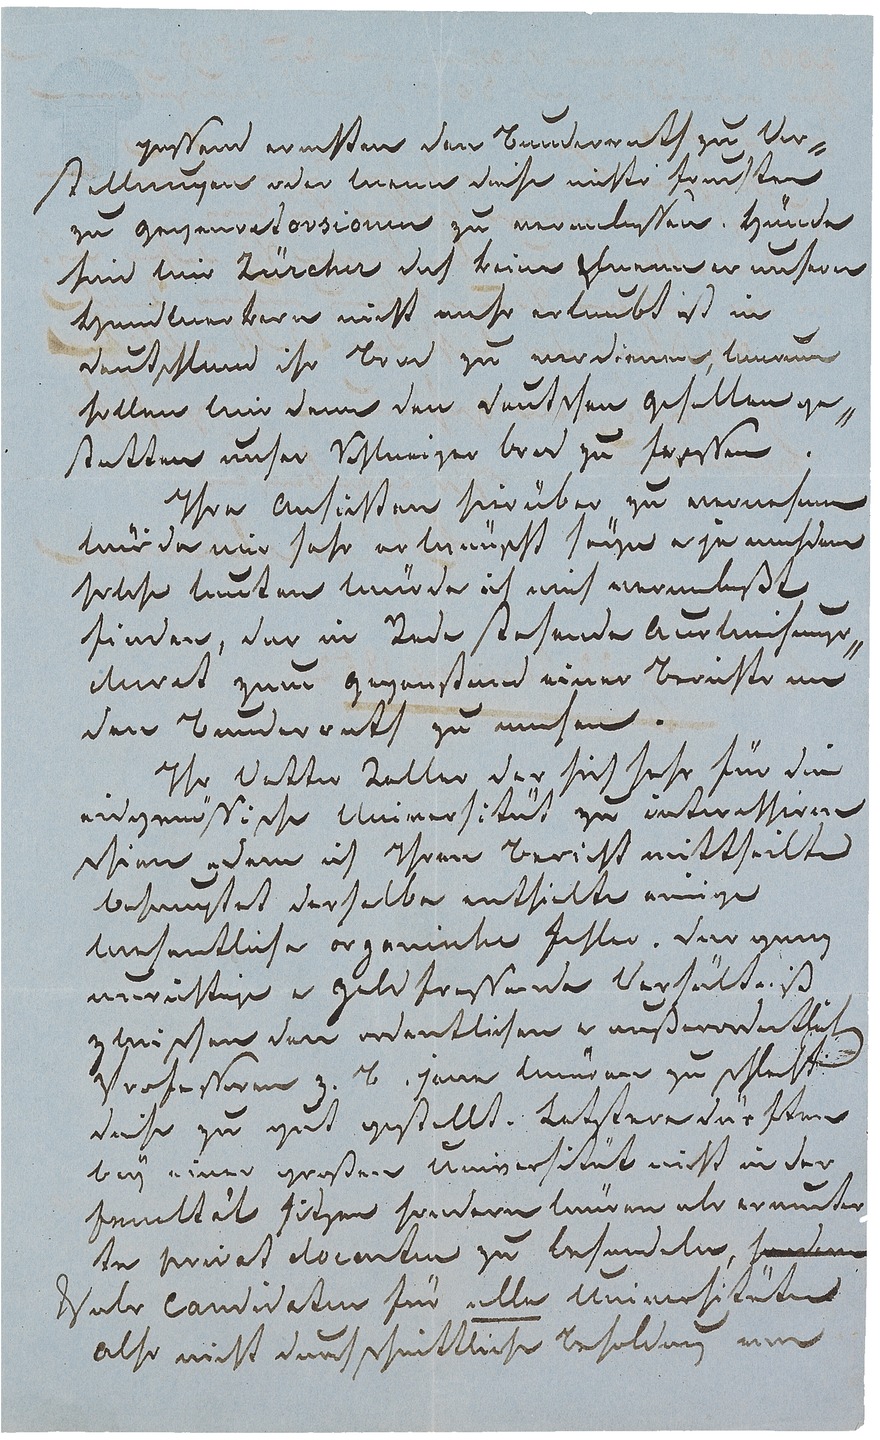 passend erachten den Bundesrath zu Vor-
stellungen oder wenn diese nichts fruchten
zu Gegenretorsionen zu veranlassen. Hände
sind wir Zürcher das keine unsern
Handwerkern nicht mehr erlaubt ist in
Deutschland ihr Brod zu verdienen, warum
sollen wir denn den deutschen Gesellen ge„
statten unser Schweizer brod zu fressen.
Ihre Ansichten hierüber zu vernehmen
würde mir sehr erwünscht seÿn & je nachdem
solche lauten würde ich mich veranlaßt
finden, das in Rede stehende Ausweisungs„
decret zum Gegenstand eines Berichts an
den Bundesrath zu machen.
Ihr Vetter Zeller der sich sehr für die
eidgenössische Universität zu interessiren
schien & dem ich Ihren Bericht mittheilte
behauptet derselbe enthielte einige
wesentliche organische Fehler. Das ganz
unrichtige & Geld fressende Verhältniß
zwischen den ordentlichen & außerordentlich
Professoren z. B. jene wären zu schlecht
diese zu gut gestellt. Letztere dürften
beÿ einer großen Universität nicht in der
Facultät sitzen sondern wären als ermunter
te privat docenten zu behandeln, sondern
als Candidaten für alle Universitäten
also nicht durchschnittliche Besoldung von